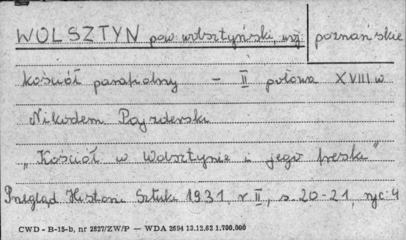 WOLSZTYN pow. wolsztyński, woj. poznańskie
Kościół parafialny – II połowa XVIII w
Nikodem Pajzderski
„Kościół w Wolsztynie i jego freski"
Przegląd Historii Sztuki 1931, r II, s. 20-21, ryc. 4
CWD - B-15-b, nr 2827/ZW/P — WDA 2694 13.12.62 1.700.000